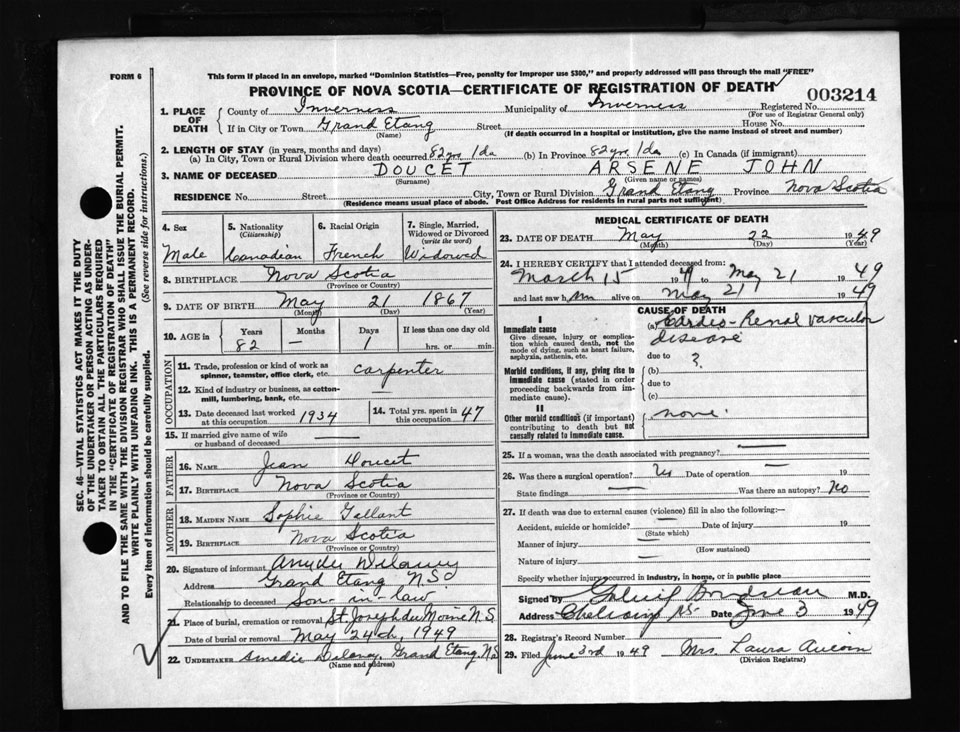 FORM 6
This form if placed in an envelope, marked "Dominion Statistics—Free, penalty for improper use $300," and properly addressed will pass through the mail "FREE"
PROVINCE OF NOVA SCOTIA—CERTIFICATE OF REGISTRATION OF DEATH
003214
1. PLACE OF DEATH
County of Inverness Municipality of Inverness Registered No.
(For use of Registrar General only)
If in City or Town Grand Etang Street House No.
(Name) (If death occurred in a hospital or institution, give the name instead of street and number)
2. LENGTH OF STAY (in years, months and days)
(a) In City, Town or Rural Division where death occurred 82 yrs 1 da (b) In Province 82 yrs 1 da (c) In Canada (if immigrant)
3. NAME OF DECEASED DOUCET ARSENE JOHN
(Surname) (Given name or names)
RESIDENCE No. Street City, Town or Rural Division Grand Etang Province Nova Scotia
(Residence means usual place of abode. Post Office Address for residents in rural parts not sufficient)
4. Sex
Male
5. Nationality
(Citizenship)
Canadian
6. Racial Origin
French
7. Single, Married, Widowed or Divorced
(write the word)
Widowed
8. BIRTHPLACE Nova Scotia
(Province or Country)
9. DATE OF BIRTH May 21 1867
(Month) (Day) (Year)
10. AGE in Years Months Days If less than one day old
82 — 1 hrs. or min.
OCCUPATION
11. Trade, profession or kind of work as spinner, teamster, office clerk, etc. carpenter
12. Kind of industry or business, as cotton-mill, lumbering, bank, etc.
13. Date deceased last worked at this occupation 1934
14. Total yrs. spent in this occupation 47
15. If married give name of wife or husband of deceased
FATHER
16. NAME Jean Doucet
17. BIRTHPLACE Nova Scotia
(Province or Country)
MOTHER
18. MAIDEN NAME Sophie Gallant
19. BIRTHPLACE Nova Scotia
(Province or Country)
20. Signature of informant
Address Grand Etang N.S.
Relationship to deceased Son-in-law
21. Place of burial, cremation or removal St. Joseph du Moine N.S.
Date of burial or removal May 24th, 1949
22. UNDERTAKER Amedie Delaney, Grand Etang, N.S.
(Name and address)
MEDICAL CERTIFICATE OF DEATH
23. DATE OF DEATH May 22 1949
(Month) (Day) (Year)
24. I HEREBY CERTIFY that I attended deceased from:
March 15 1949 to May 21 1949
and last saw him alive on May 21 1949
CAUSE OF DEATH
I
Immediate cause
Give disease, injury or complication which caused death, not the mode of dying, such as heart failure, asphyxia, asthenia, etc.
(a) Cardio-Renal vascular disease
due to ?
Morbid conditions, if any, giving rise to immediate cause (stated in order proceeding backwards from immediate cause).
(b)
due to
(c)
II
Other morbid conditions (if important) contributing to death but not causally related to immediate cause.
none.
25. If a woman, was the death associated with pregnancy?
26. Was there a surgical operation? Date of operation 19
State findings Was there an autopsy? No
27. If death was due to external causes (violence) fill in also the following:—
Accident, suicide or homicide? Date of injury 19
(State which)
Manner of injury
(How sustained)
Nature of injury
Specify whether injury occurred in industry, in home, or in public place
Signed by M.D.
Address N.S. Date June 3 1949
28. Registrar's Record Number
29. Filed June 3rd 1949 Mrs. Laura Aucoin
(Division Registrar)
SEC. 46—VITAL STATISTICS ACT MAKES IT THE DUTY
OF THE UNDERTAKER OR PERSON ACTING AS UNDER-
TAKER TO OBTAIN ALL THE PARTICULARS REQUIRED
IN THE "CERTIFICATE OF REGISTRATION OF DEATH"
AND TO FILE THE SAME WITH THE DIVISION REGISTRAR WHO SHALL ISSUE THE BURIAL PERMIT.
WRITE PLAINLY WITH UNFADING INK. THIS IS A PERMANENT RECORD.
Every item of information should be carefully supplied. (See reverse side for instructions.)